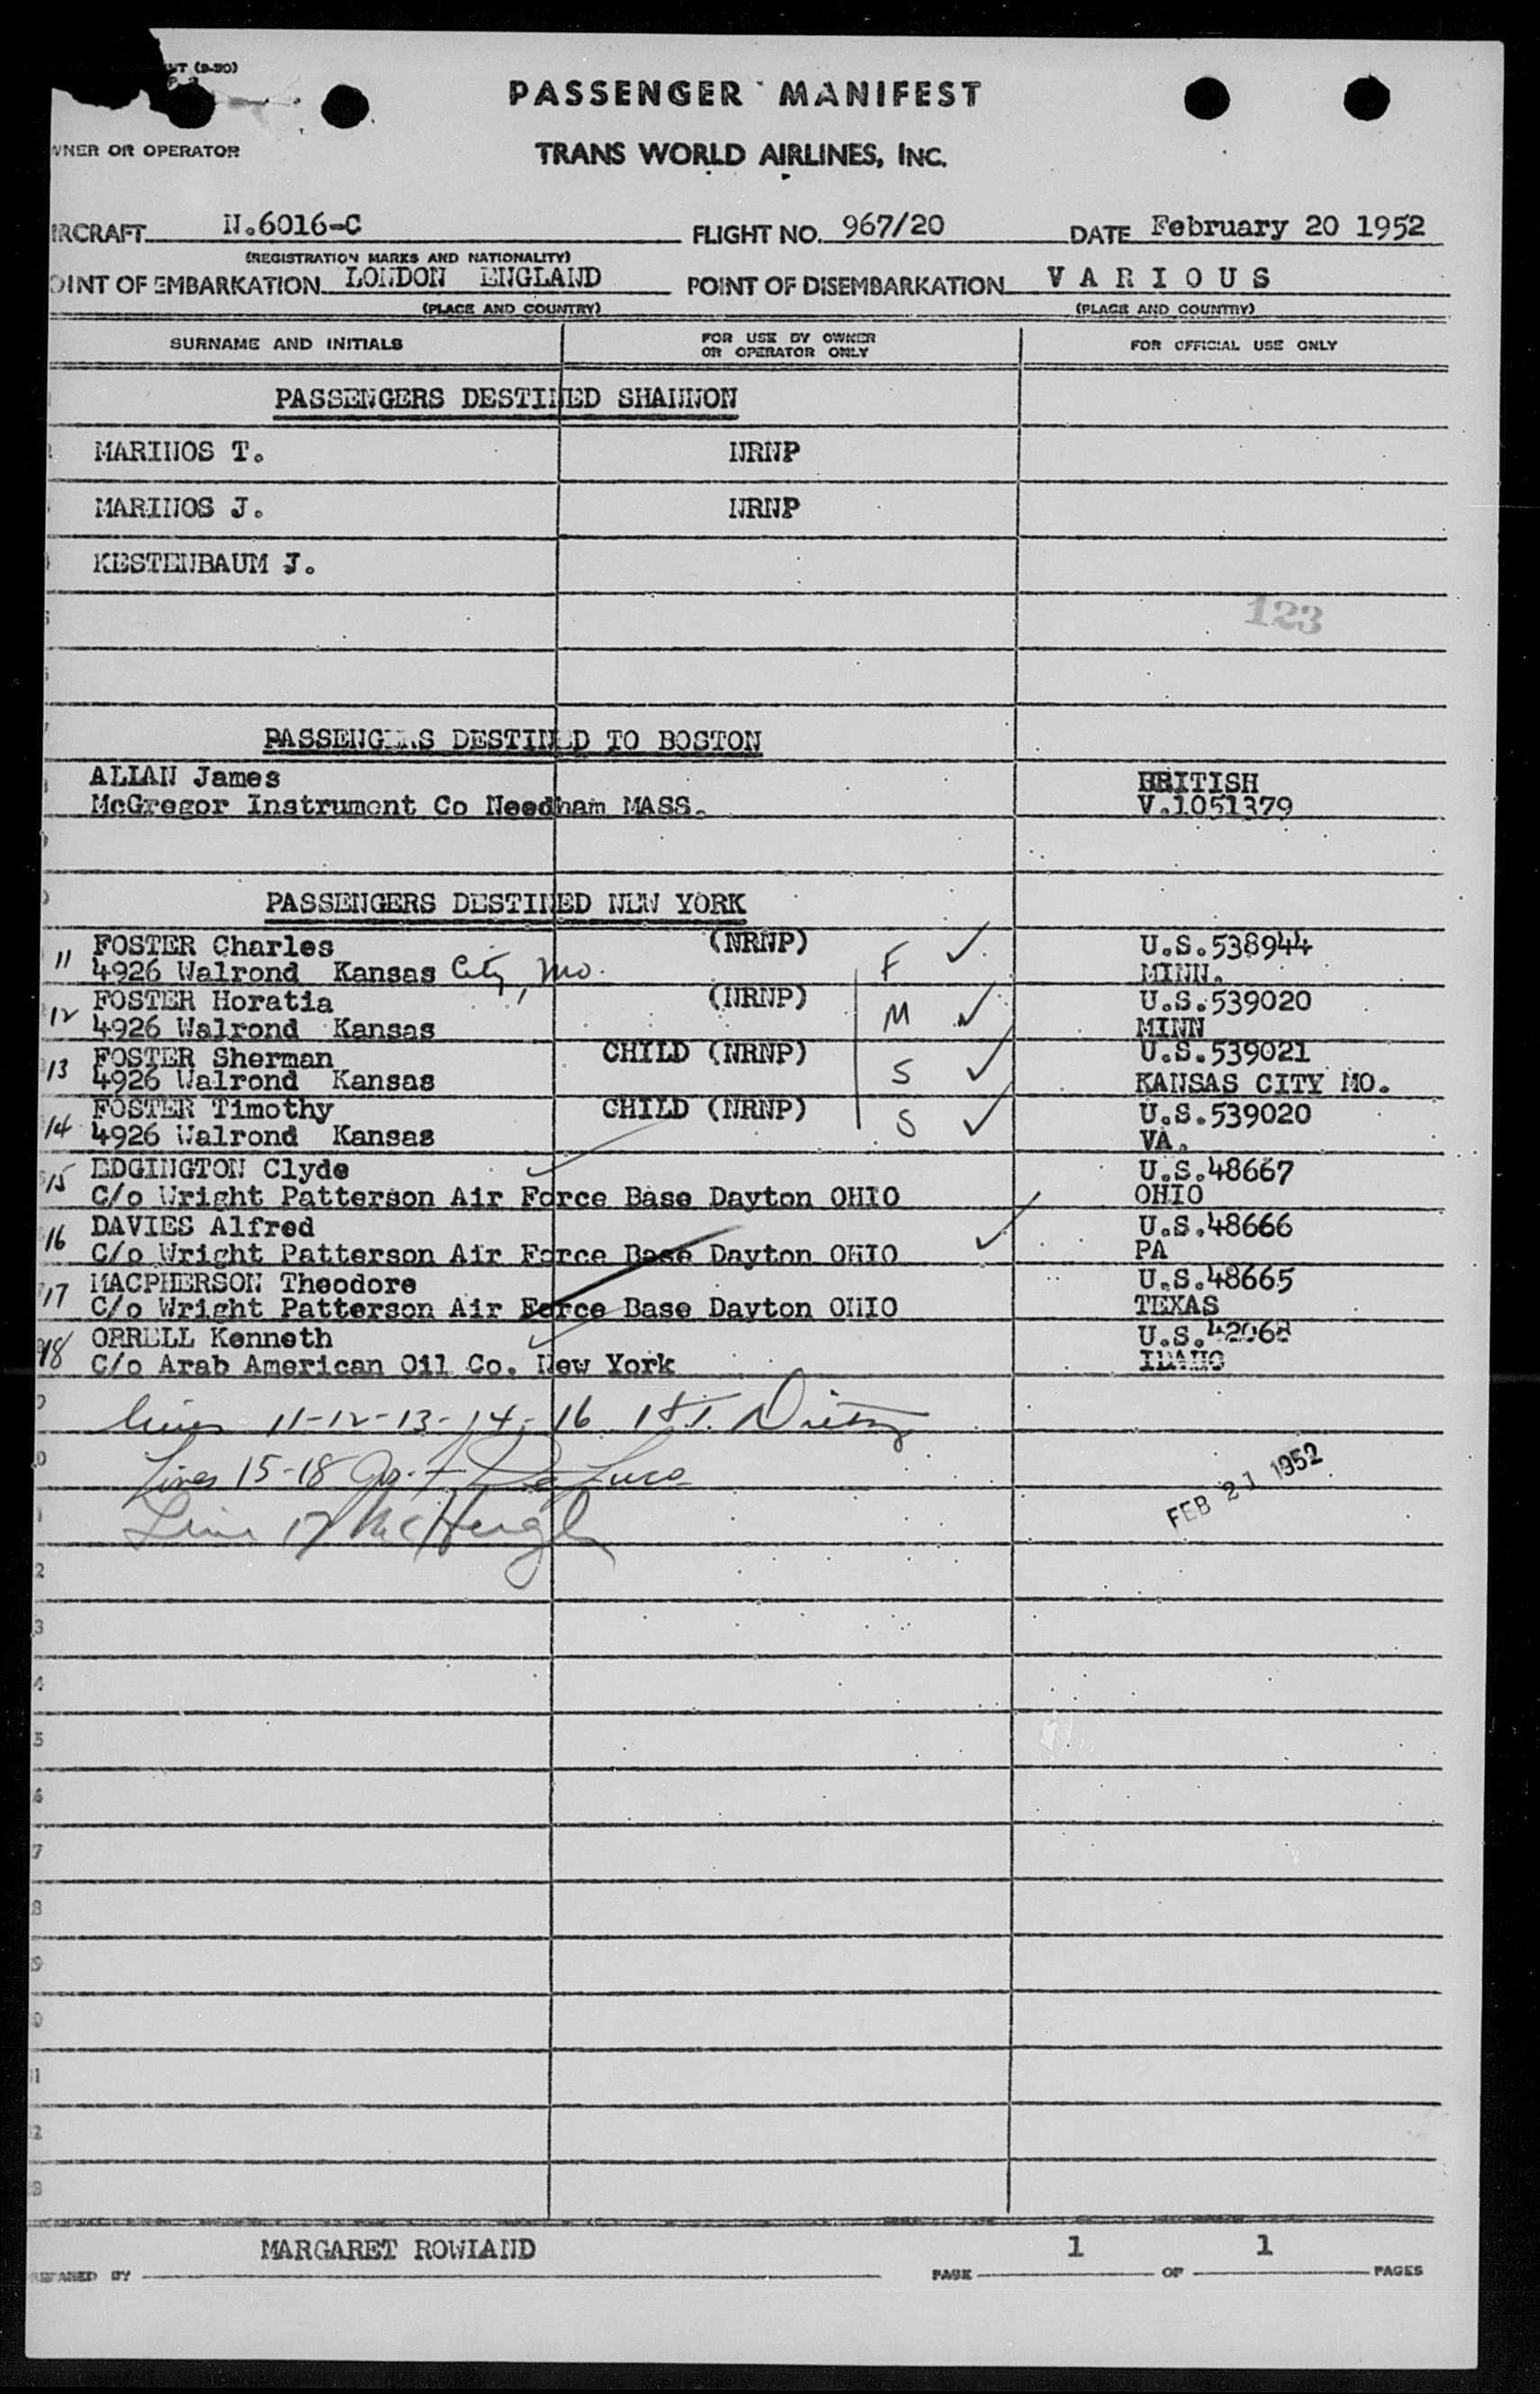 NT (9-50)
PASSENGER MANIFEST
WNER OR OPERATOR
TRANS WORLD AIRLINES, INC.
IRCRAFT N.6016-C FLIGHT NO. 967/20 DATE February 20 1952
(REGISTRATION MARKS AND NATIONALITY)
OINT OF EMBARKATION LONDON ENGLAND POINT OF DISEMBARKATION V A R I O U S
(PLACE AND COUNTRY) (PLACE AND COUNTRY)
SURNAME AND INITIALS FOR USE BY OWNER OR OPERATOR ONLY FOR OFFICIAL USE ONLY
PASSENGERS DESTINED SHANNON
MARINOS T. NRNP
MARINOS J. NRNP
KESTENBAUM J.
123
PASSENGERS DESTINED TO BOSTON
ALLAN James BRITISH
McGregor Instrument Co Needham MASS. V.1051379
PASSENGERS DESTINED NEW YORK
11 FOSTER Charles (NRNP) F ✓ U.S.538944
4926 Walrond Kansas City, Mo. MINN.
12 FOSTER Horatia (NRNP) M ✓ U.S.539020
4926 Walrond Kansas MINN
13 FOSTER Sherman CHILD (NRNP) S ✓ U.S.539021
4926 Walrond Kansas KANSAS CITY MO.
14 FOSTER Timothy CHILD (NRNP) S ✓ U.S.539020
4926 Walrond Kansas VA.
15 EDGINGTON Clyde U.S.48667
C/o Wright Patterson Air Force Base Dayton OHIO OHIO
16 DAVIES Alfred U.S.48666
C/o Wright Patterson Air Force Base Dayton OHIO PA
17 MACPHERSON Theodore U.S.48665
C/o Wright Patterson Air Force Base Dayton OHIO TEXAS
18 ORRELL Kenneth U.S.42068
C/o Arab American Oil Co. New York IDAHO
Lines 11-12-13-14-16
Lines 15-18 De Luca
Line 17 McHugh
FEB 21 1952
MARGARET ROWLAND 1 1
REPARED BY PAGE OF PAGES